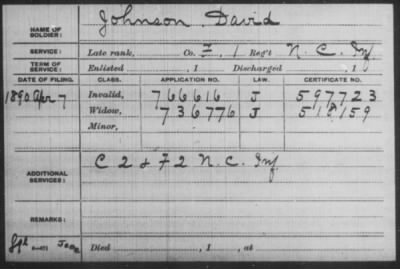 Johnson David
NAME OF SOLDIER:
SERVICE: Late rank, Co. I, 1 Reg't N.C. Inf
TERM OF SERVICE: Enlisted , 1 Discharged , 1
DATE OF FILING. CLASS. APPLICATION NO. LAW. CERTIFICATE NO.
1890 Apr 7 Invalid, 766616 J 597723
Widow, 736776 J 518159
Minor,
C 2 & F 2 N.C. Inf
ADDITIONAL SERVICES:
REMARKS:
Died , 1 , at